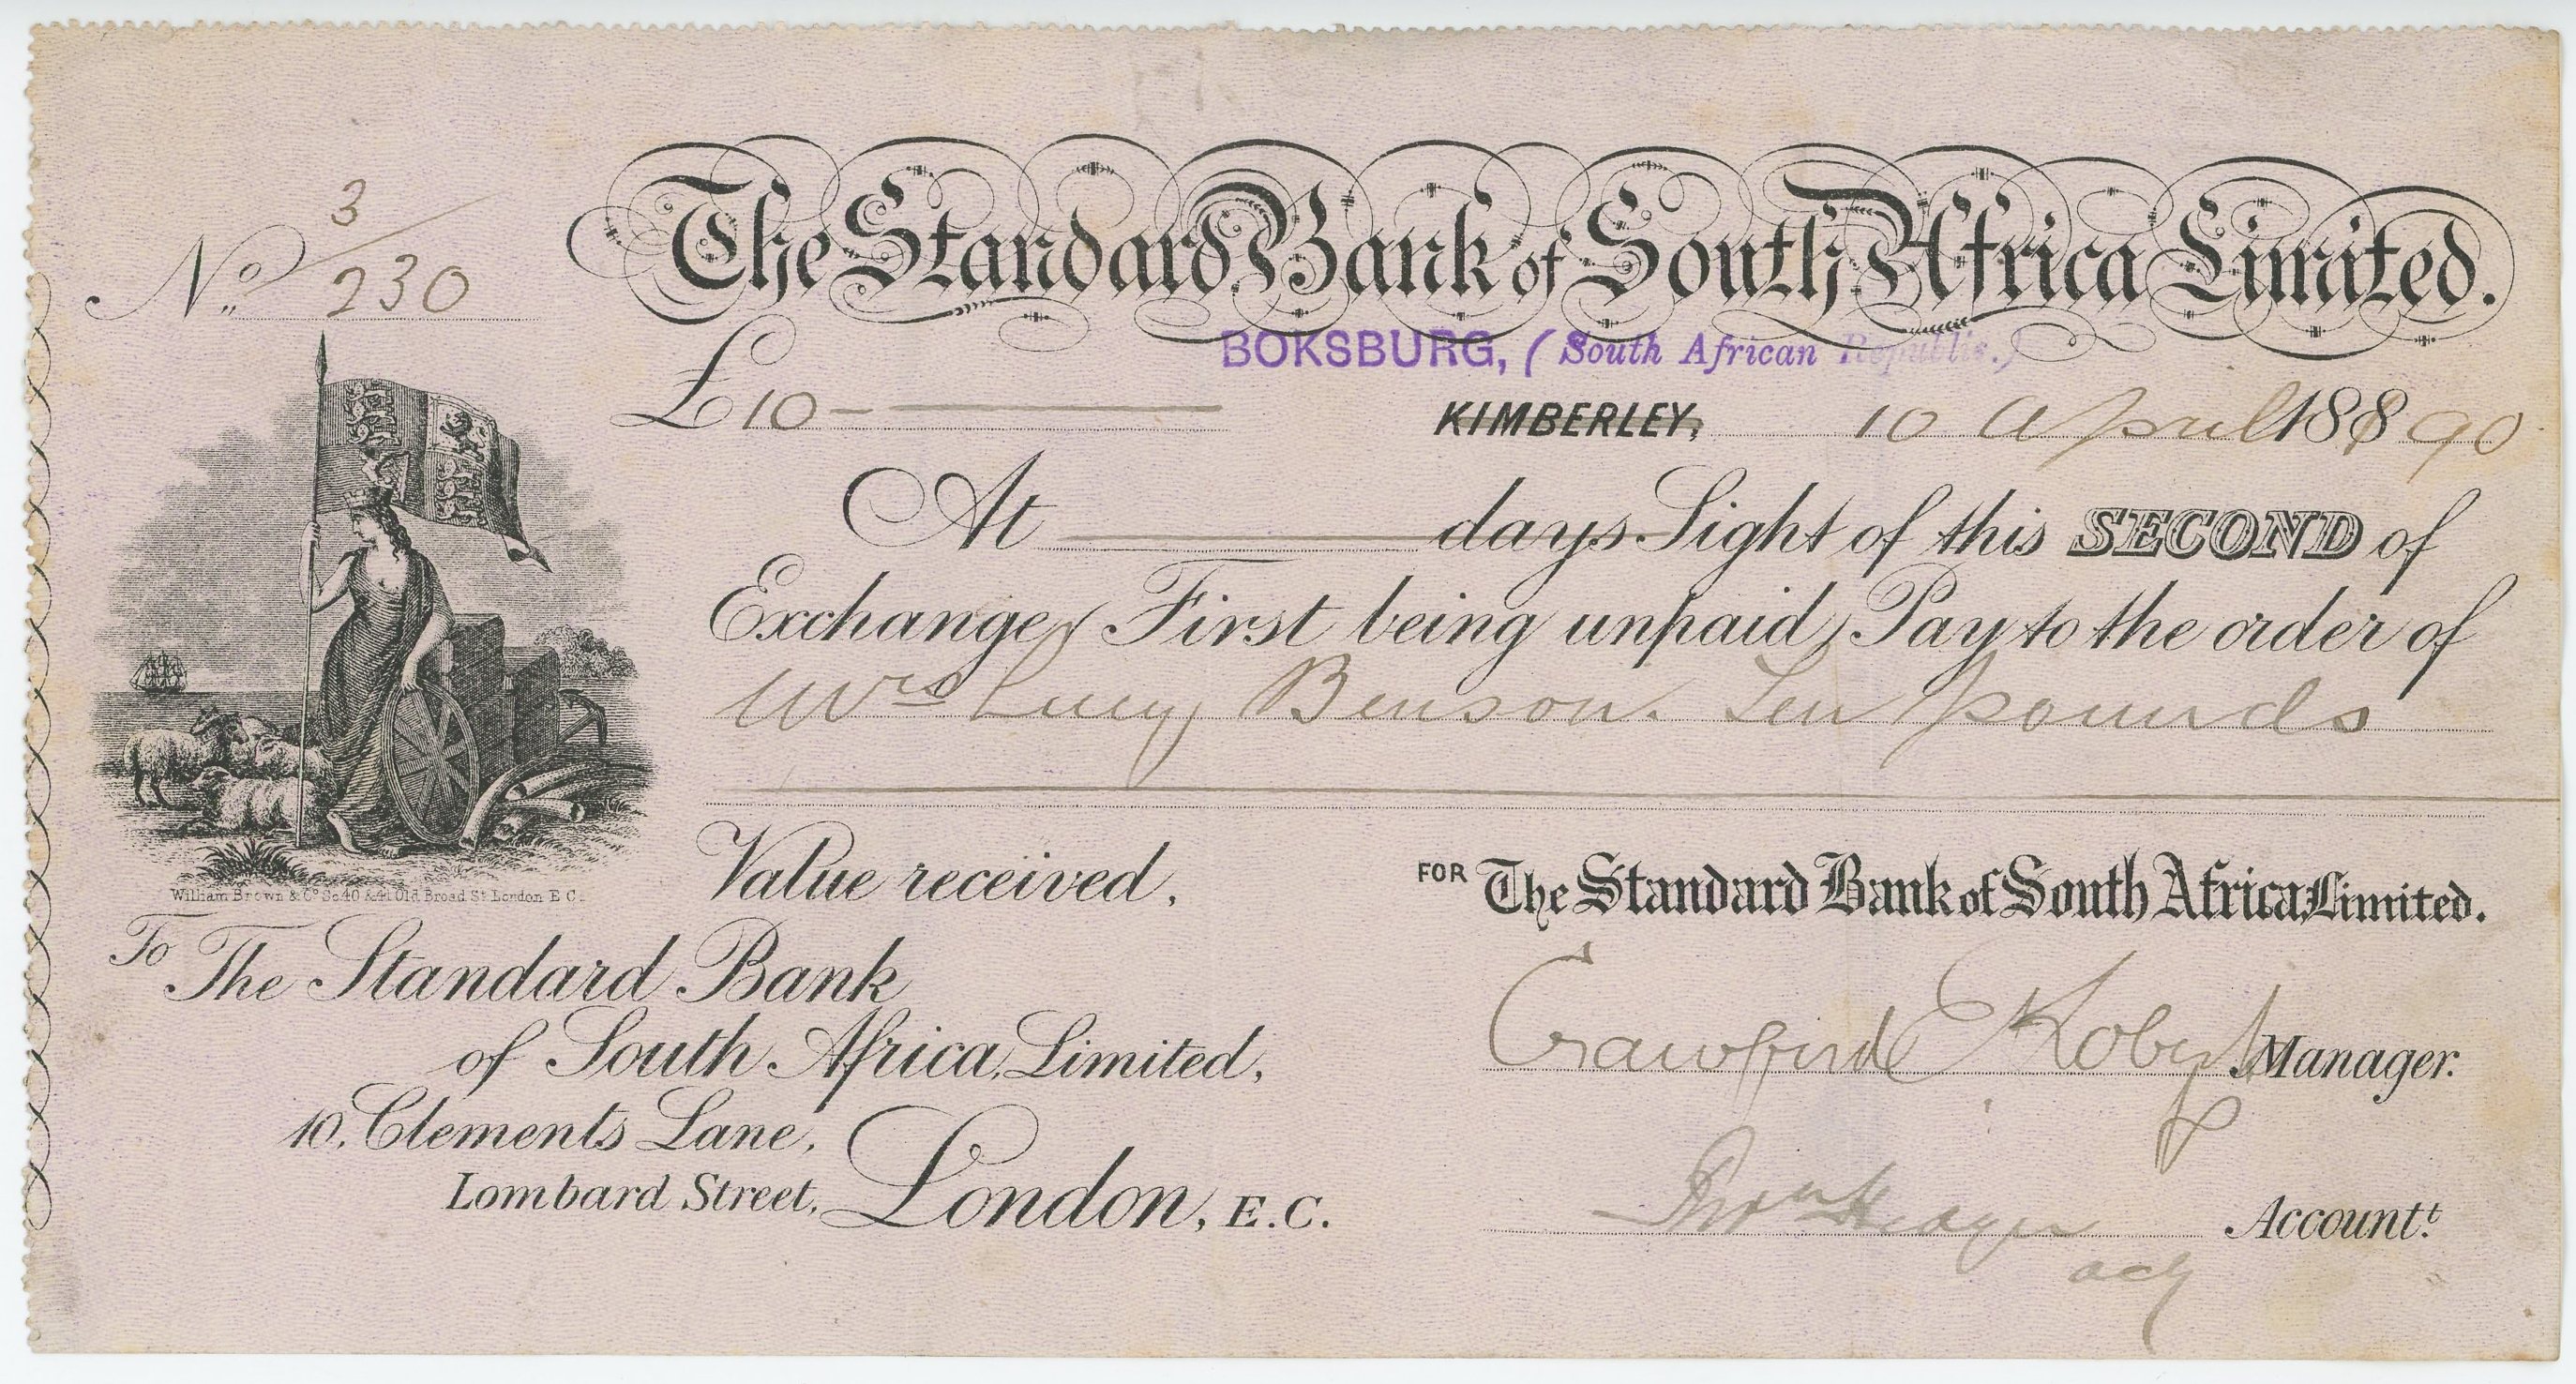 No. 3/230
The Standard Bank of South Africa Limited.
BOKSBURG, (South African Republic.)
£10-
KIMBERLEY, 10 April 188 90
At days Sight of this SECOND of
Exchange, First being unpaid, Pay to the order of
Mrs Lucy Benson. Ten pounds
William Brown & Co. Sc. 40 & 41 Old Broad St. London E C.
Value received,
FOR The Standard Bank of South Africa Limited.
To The Standard Bank
of South Africa, Limited,
10, Clements Lane,
Lombard Street, London, E.C.
Crawford E Manager.
Accountt.